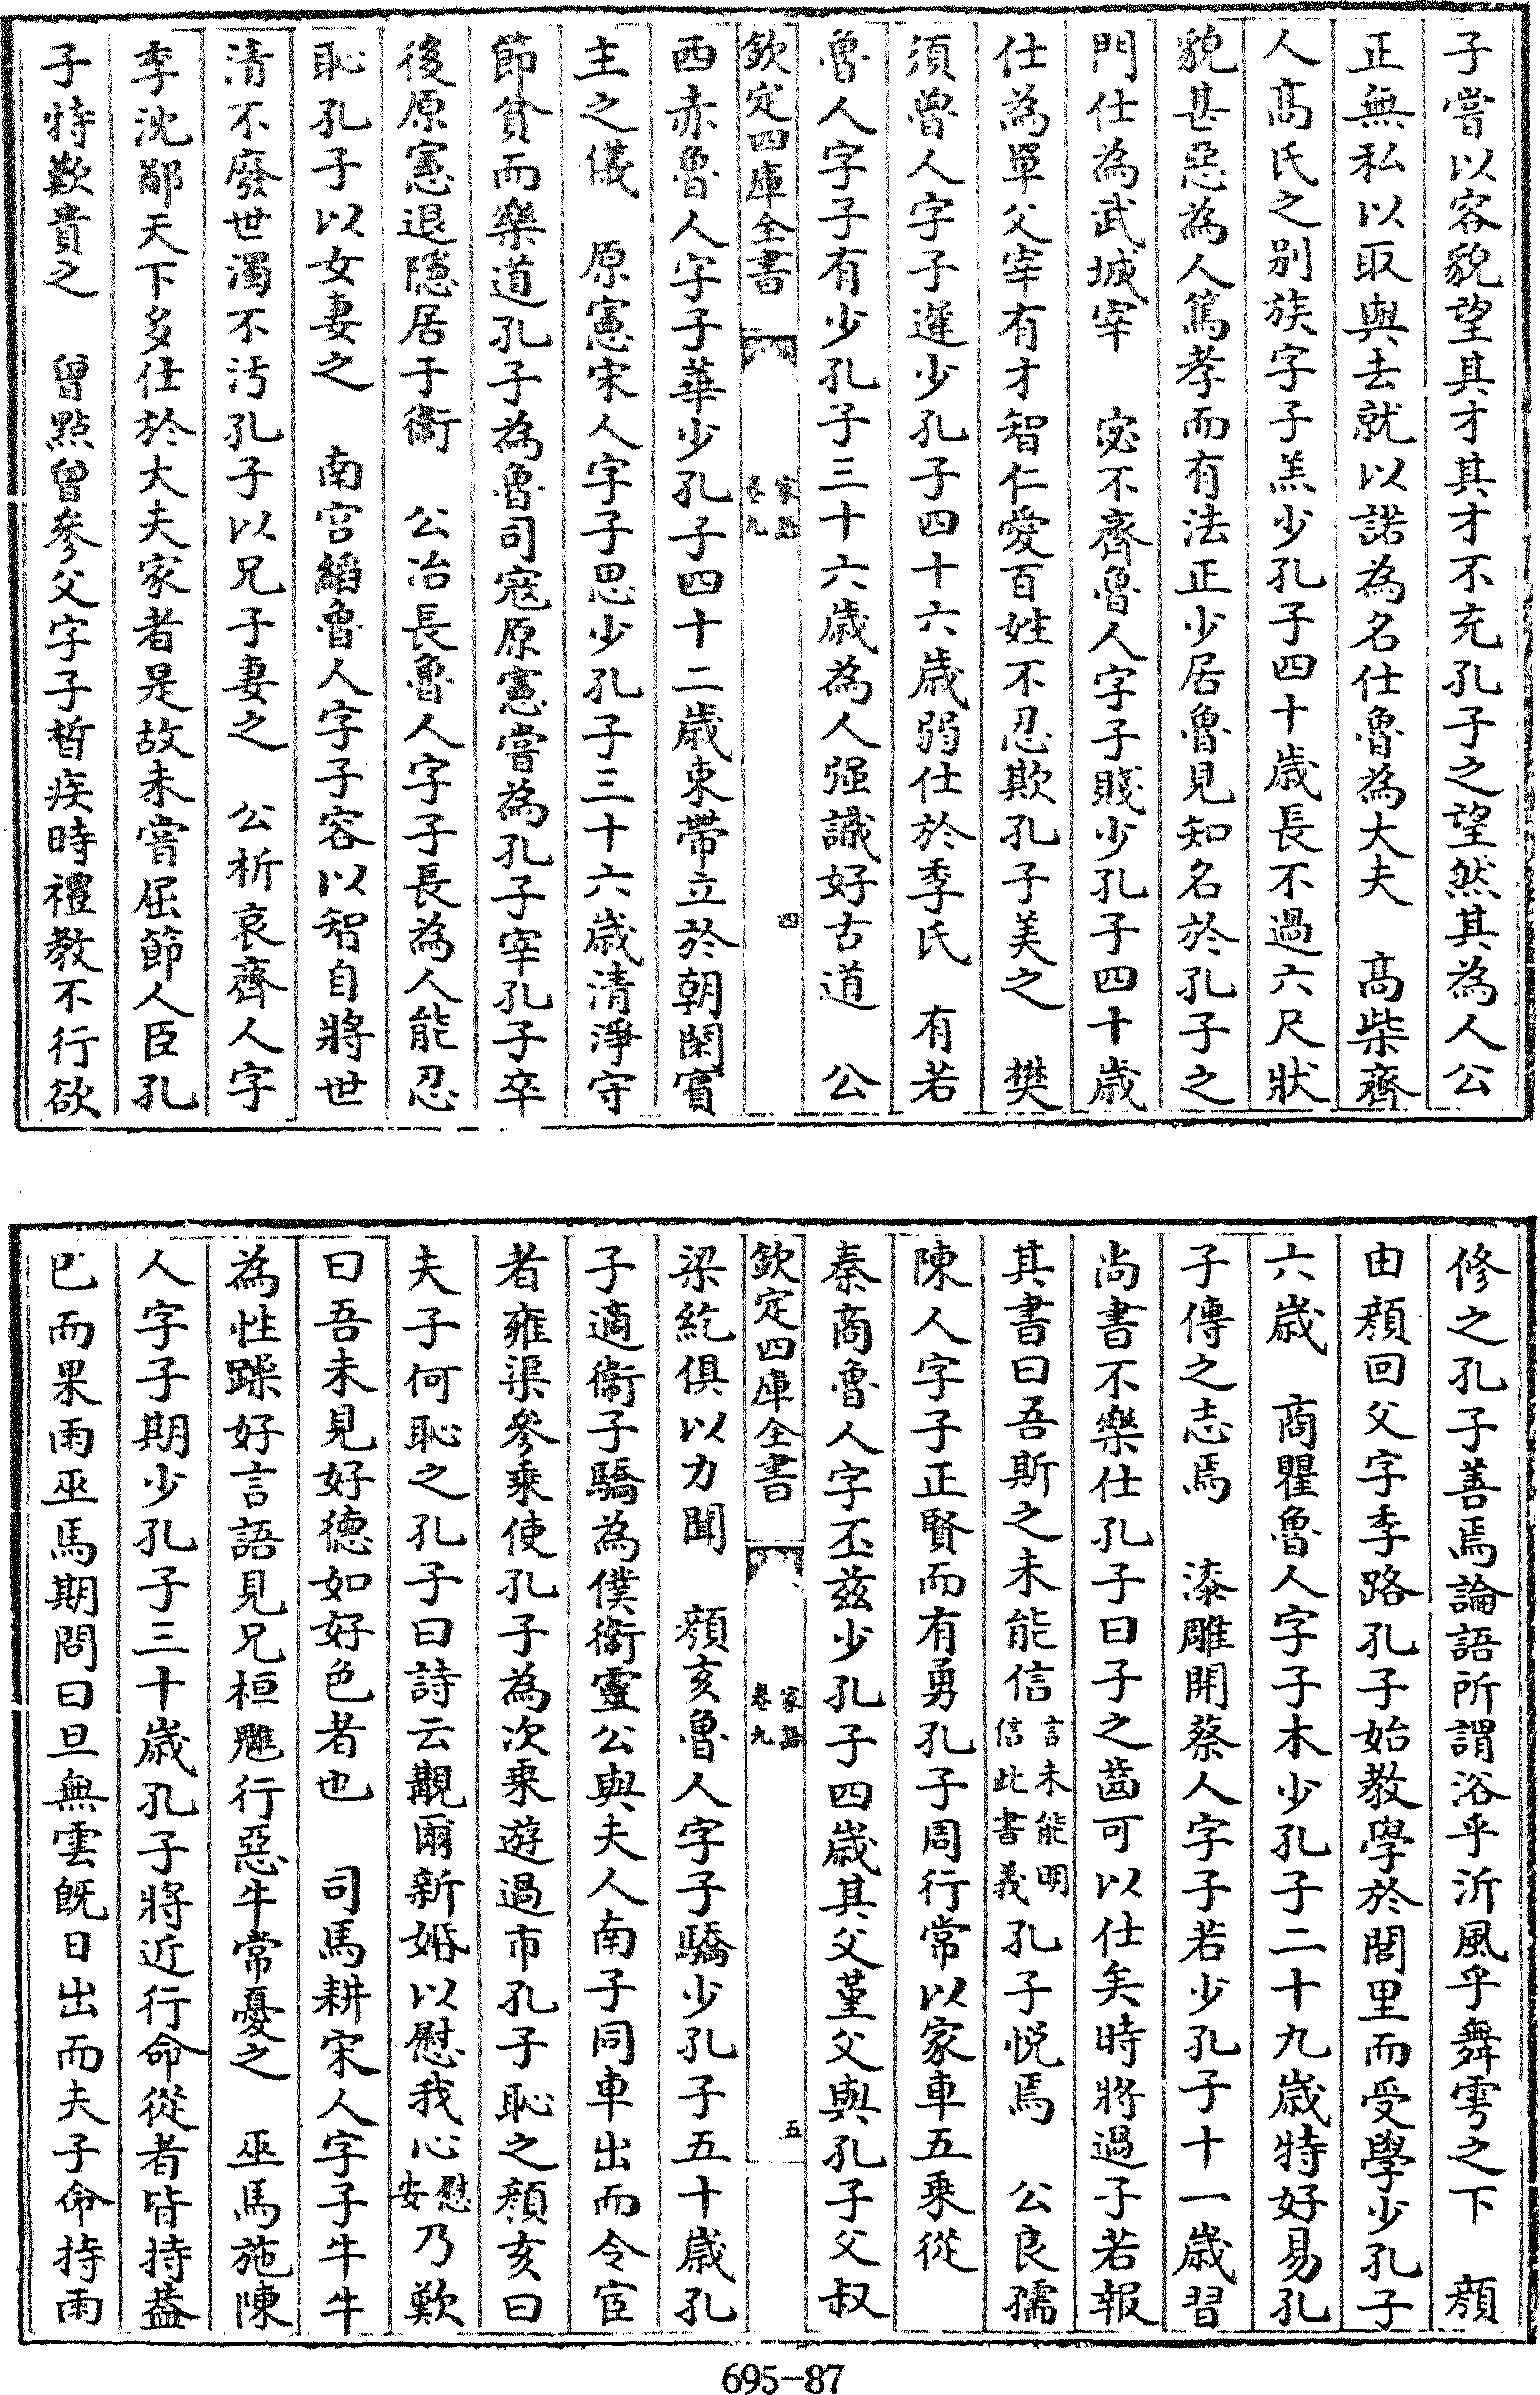 子嘗以容貌望其才其才不充孔子之望然其為人公
正無私以取與去就以諾為名仕魯為大夫　高柴齊
人高氏之别族字子羔少孔子四十歲長不過六尺狀
貌甚惡為人篤孝而有法正少居魯見知名於孔子之
門仕為武城宰　宓不齊魯人字子賤少孔子四十歲
仕為單父宰有才智仁愛百姓不忍欺孔子美之　樊
須魯人字子遲少孔子四十六歲弱仕於季氏　有若
魯人字子有少孔子三十六歲為人强識好古道　公
欽定四庫全書　家語卷九　四
西赤魯人字子華少孔子四十二歲束帶立於朝閑賓
主之儀　原憲宋人字子思少孔子三十六歲清淨守
節貧而樂道孔子為魯司寇原憲嘗為孔子宰孔子卒
後原憲退隱居于衞　公冶長魯人字子長為人能忍
恥孔子以女妻之　南宫縚魯人字子容以智自將世
清不廢世濁不汚孔子以兄子妻之　公析哀齊人字
季沈鄙天下多仕於大夫家者是故未嘗屈節人臣孔
子特歎貴之　曾點曾參父字子晳疾時禮教不行欲
修之孔子善焉論語所謂浴乎沂風乎舞雩之下　顔
由顔回父字季路孔子始教學於闕里而受學少孔子
六歲　商瞿魯人字子木少孔子二十九歲特好易孔
子傳之志焉　漆雕開蔡人字子若少孔子十一歲習
尚書不樂仕孔子曰子之齒可以仕矣時將過子若報
其書曰吾斯之未能信言未能明信此書義孔子悦焉　公良孺
陳人字子正賢而有勇孔子周行常以家車五乘從
秦商魯人字丕兹少孔子四歲其父堇父與孔子父叔
欽定四庫全書　家語卷九　五
梁紇俱以力聞　顔亥魯人字子驕少孔子五十歲孔
子適衞子驕為僕衞靈公與夫人南子同車出而令宦
者雍渠參乘使孔子為次乘遊過市孔子恥之顔亥曰
夫子何恥之孔子曰詩云覯爾新婚以慰我心慰安乃歎
曰吾未見好德如好色者也　司馬耕宋人字子牛牛
為性躁好言語見兄桓魋行惡牛常憂之　巫馬施陳
人字子期少孔子三十歲孔子將近行命從者皆持蓋
已而果雨巫馬期問曰旦無雲旣日出而夫子命持雨
695-87